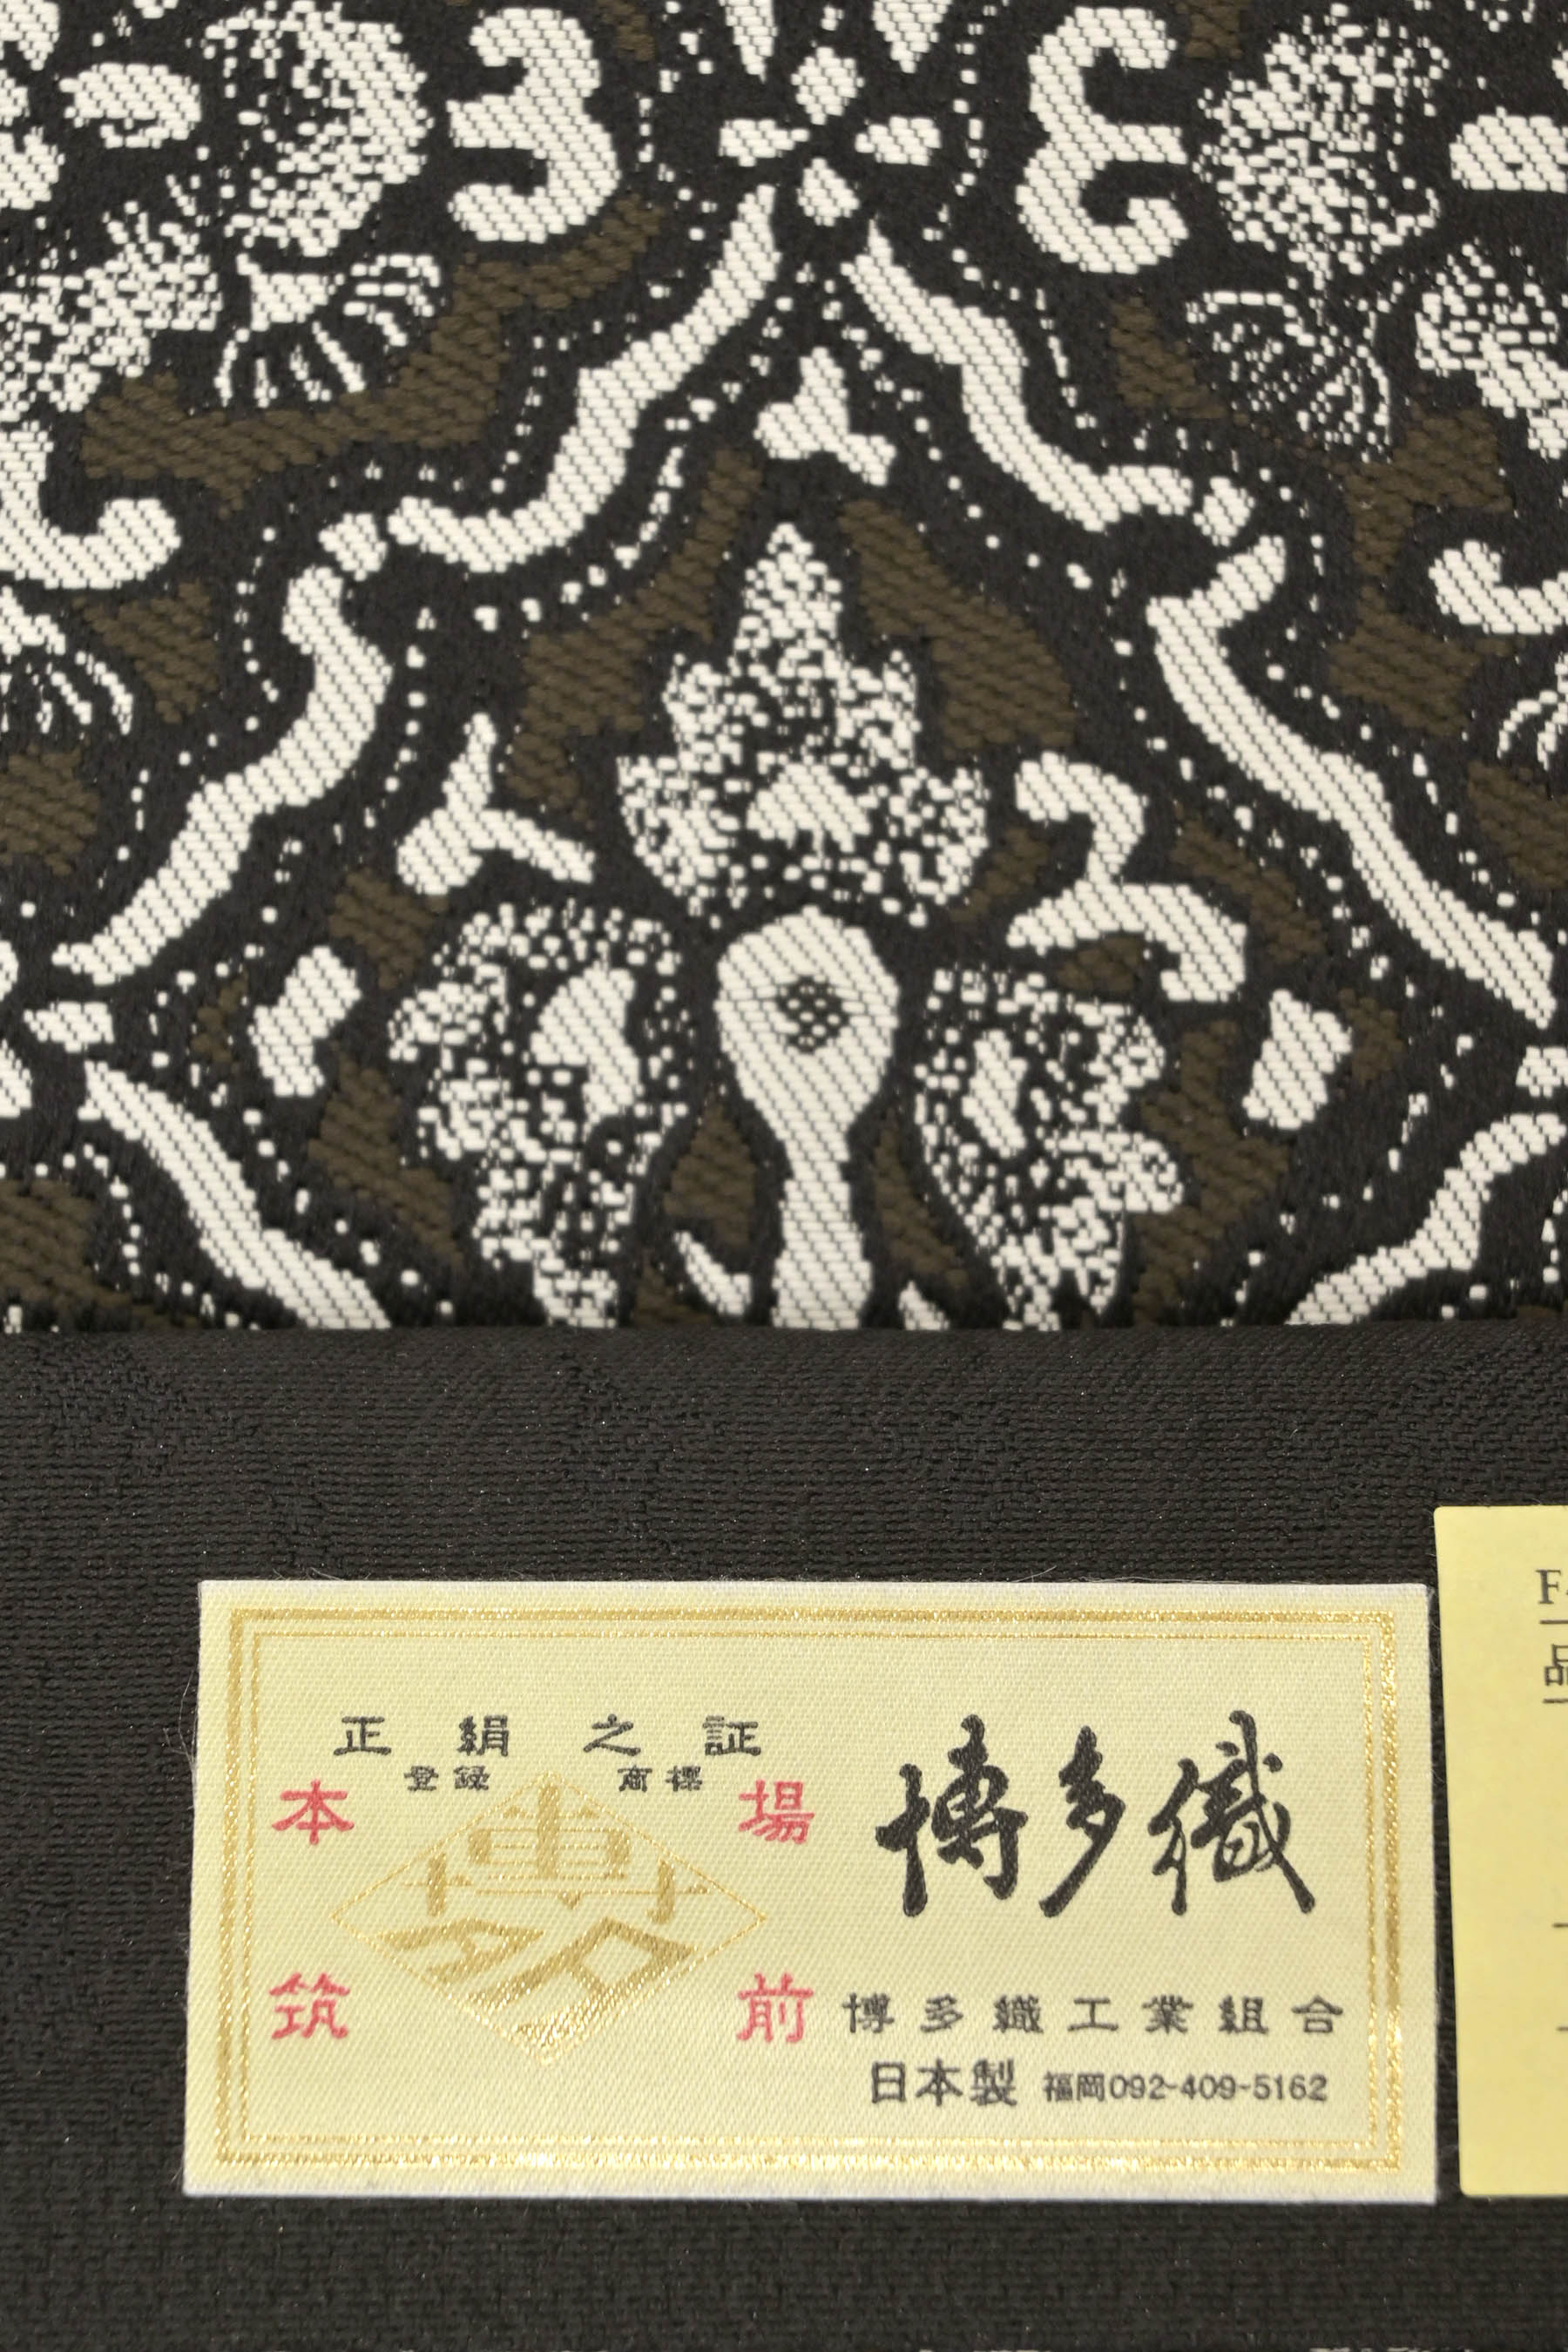 正絹之証
登録 商標
本場
筑前
博多
博多織
博多織工業組合
日本製 福岡092-409-5162
F
品